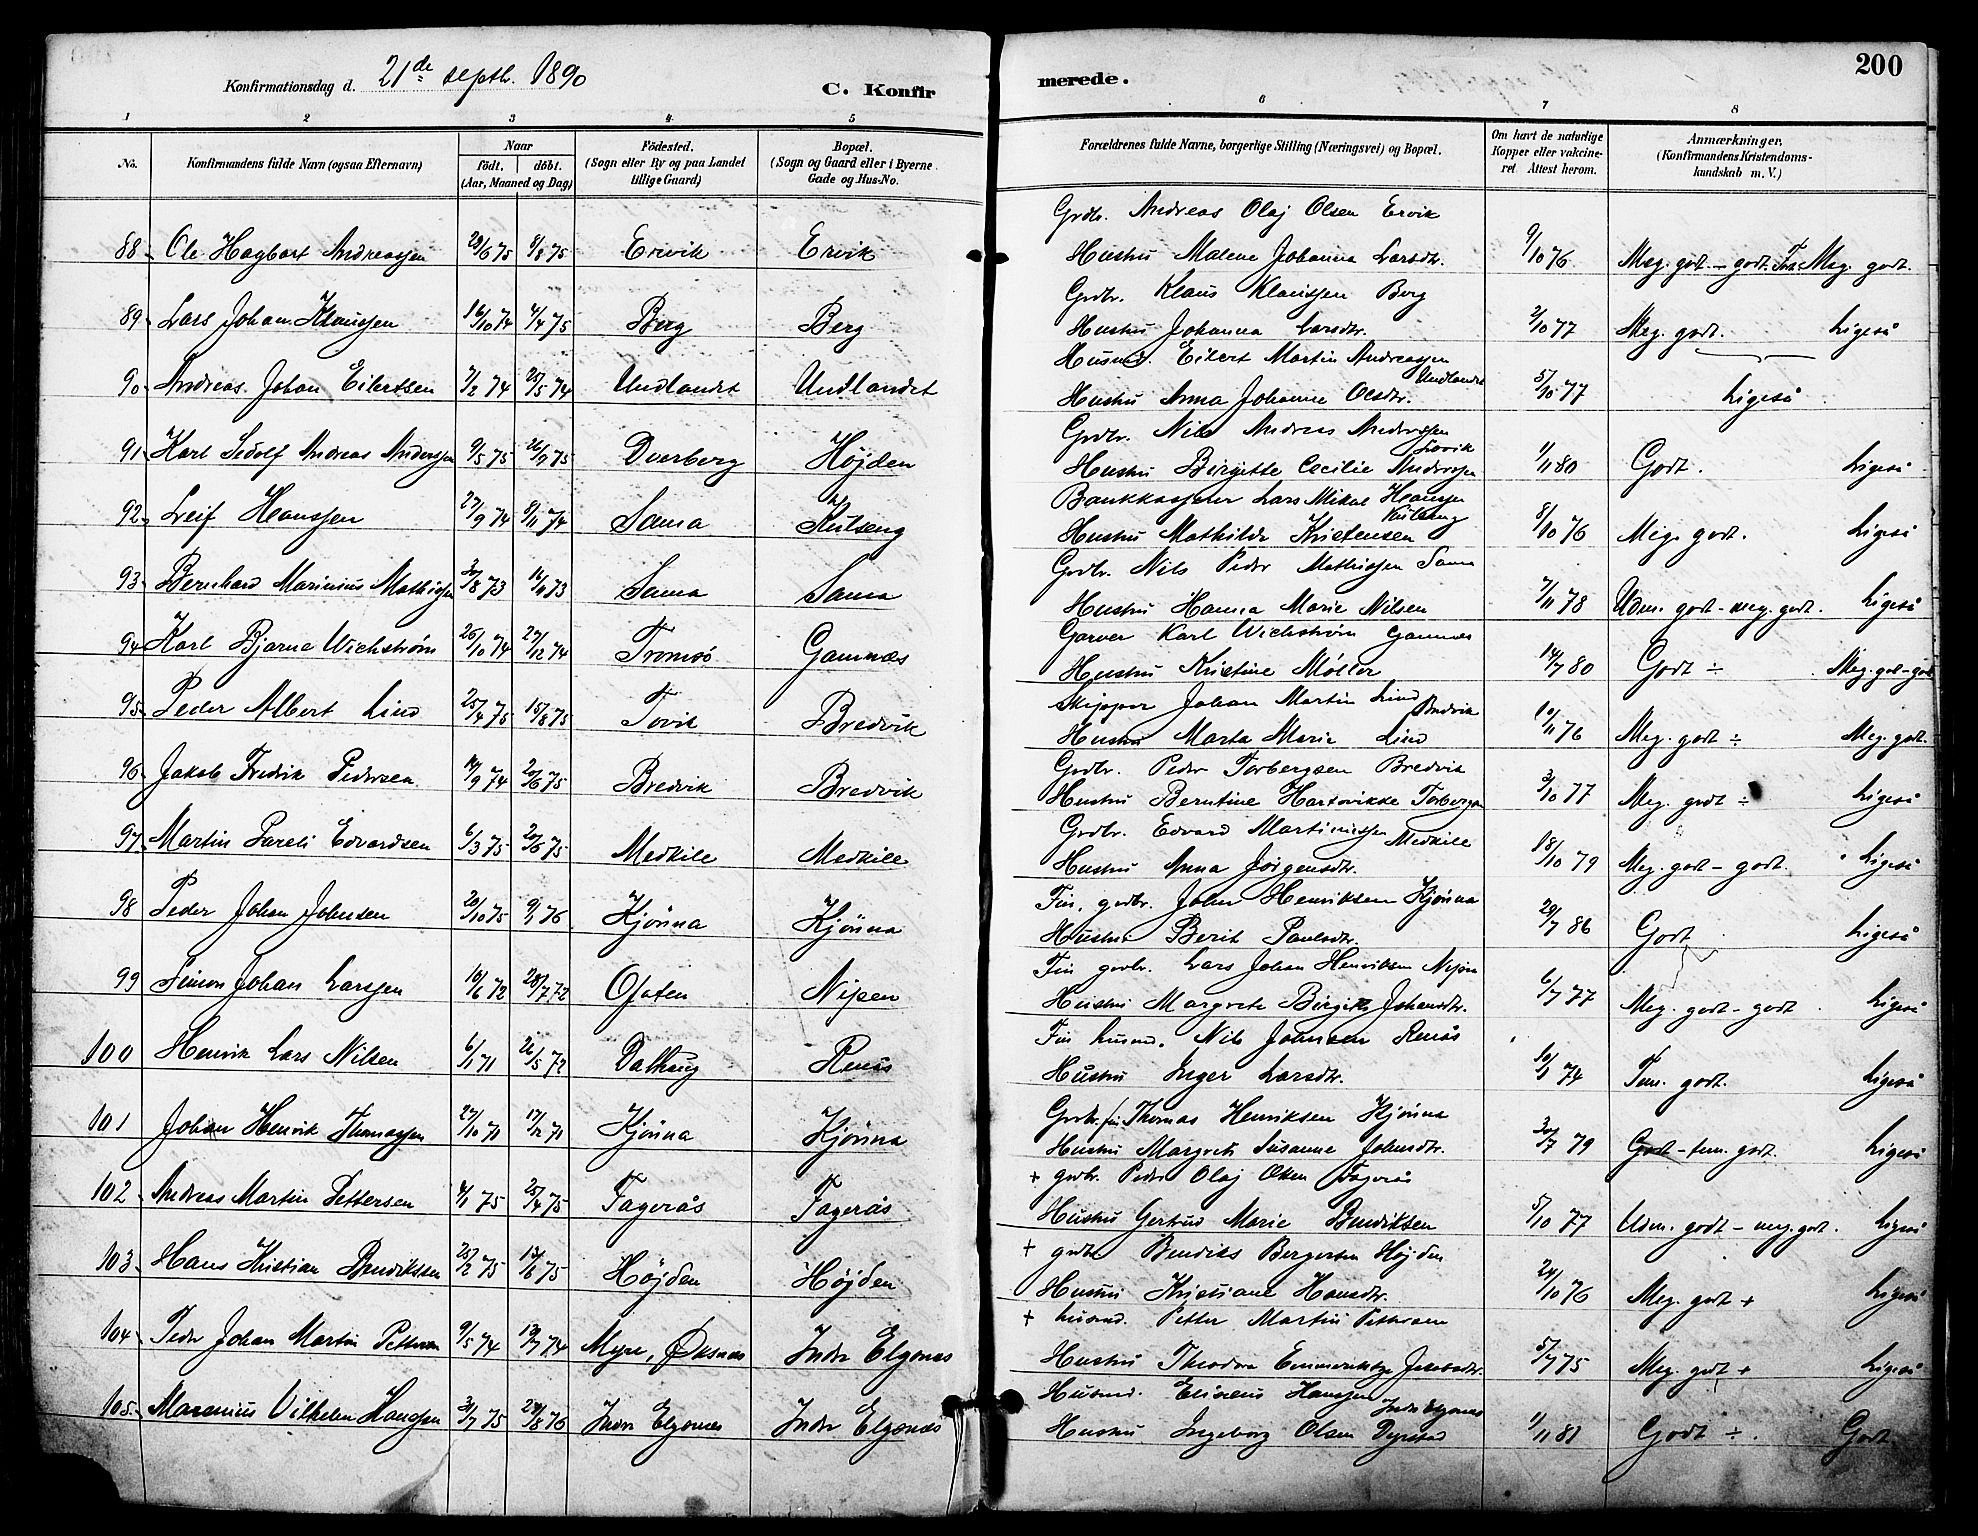 Konfirmationsdag d. 21de septbr. 1890
C. Konfir
merede.
200
1 2 3 4 5 6 7 8
No. Konfirmandens fulde Navn (ogsaa Efternavn) Naar födt. döbt. (Aar, Maaned og Dag) Födested. (Sogn eller By og paa Landet tillige Gaard) Bopæl. (Sogn og Gaard eller i Byerne Gade og Hus-No. Forældrenes fulde Navne, borgerlige Stilling (Næringsvei) og Bopæl. Om havt de naturlige Kopper eller vakcineret Attest herom. Anmærkninger, (Konfirmandens Kristendomskundskab m. V.)
Grdbr. Andreas Olaj Olsen Ervik
88 Ole Hagbart Andreassen 29/6 75 8/8 75 Ervik Ervik Hustru Malene Johanna Larsdtr. 9/10 76 Meg. godt - godt. Meg. godt.
Grdbr. Klaus Klaussen Berg
89 Lars Johan Klaussen 16/10 74 4/4 75 Berg Berg Hustru Johanna Larsdtr. 2/10 77 Meg. godt. Ligeså
Husmd. Eilert Martin Andreassen Undlandet
90 Andreas Johan Eilertsen 7/2 74 25/5 74 Undlandet Undlandet Hustru Anna Johanne Olsdtr. 5/10 77 Ligeså
Grdbr. Nils Andreas Anderssen
91 Karl Sedolf Andreas Anderssen 9/5 75 26/9 75 Dverberg Højden Hustru Birgitte Cecilie Anderssen 1/11 80 Godt. Ligeså
Bankkasserer Lars Mikal Hanssen Kulseng
92 Leif Hanssen 27/9 74 8/11 74 Sama Kulseng Hustru Mathilde Kristensen 8/10 76 Meg. godt. Ligeså
Grdbr. Nils Peder Mathissen Sama
93 Bernhard Marinius Mathissen 30/8 73 73 Sama Sama Hustru Hanna Marie Nilsen 7/11 78 Udm. godt - meg. godt. Ligeså
Garver Karl Wichstrøm Gamnæs
94 Karl Bjarne Wichstrøm 26/10 74 27/12 74 Tromsö Gamnæs Hustru Kristine Møller 14/7 80 Godt ÷ Meg. godt - godt
Skipper Johan Martin Lind Bredvik
95 Peder Albert Lind 25/4 75 15/8 75 Tovik Bredvik Hustru Marta Marie Lind 10/11 76 Meg. godt ÷ Meg. godt.
Grdbr. Peder Torbergsen Bredvik
96 Jakob Fredrik Pedersen 14/9 74 20/6 75 Bredvik Bredvik Hustru Berntine Hartvikke Torbergsen 3/10 77 Meg. godt ÷ Ligeså
Grdbr. Edvard Martinussen Medkile
97 Martin Pareli Edvardsen 6/3 75 20/6 75 Medkile Medkile Hustru Anna Jörgensdtr. 18/10 79 Meg. godt - godt. Ligeså
Fin. grdbr. John Henriksen Kjönna
98 Peder Johan Johnsen 20/10 75 9/1 76 Kjönna Kjönna Hustru Berit Paulsdtr. 29/7 86 Godt Ligeså
Fin grdbr. Lars Johan Henriksen Nipen
99 Simon Johan Larssen 10/6 72 28/7 72 Ofoten Nipen Hustru Margrete Birgitte Johansdtr. 6/7 77 Meg. godt - godt Ligeså
Fin husmd. Nils Johnsen Renås
100 Henrik Lars Nilsen 6/1 71 26/5 72 Dalhaug Renås Hustru Inger Larsdtr. 10/1 74 Tem. godt. Ligeså
Grdbr. fin Thomas Henriksen Kjönna
101 Johan Henrik Thomassen 27/10 71 17/12 71 Kjönna Kjönna Hustru Margrete Susanne Johnsdtr. 30/7 79 Godt - tem. godt. Ligeså
+ grdbr. Peder Olaj Olsen Fagerås
102 Andreas Martin Pettersen 4/1 75 25/4 75 Fagerås Fagerås Hustru Gertrud Marie Bendiksen 5/10 77 Udm. godt - meg. godt. Ligeså
+ grdbr Bendiks Bergersen Højden
103 Hans Kristian Bendiksen 25/2 75 13/6 75 Højden Højden Hustru Kristiane Hansdtr. 24/10 76 Meg. godt + Ligeså
+ husmd. Petter Martin Pettersen
104 Peder Johan Martin Pettersen 9/5 74 74 Myre, Øksnæs Indre Elgsnæs Hustru Theodora Emmerentze Jakobsdtr. 5/7 75 Meg. godt + Ligeså
Husmd. Elisæus Hanssen Indre Elgsnæs
105 Marenius Vilhelm Hanssen 31/7 75 29/8 76 Indre Elgsnæs Indre Elgsnæs Hustru Ingeborg Olsen Dyrstad 1/11 81 Godt ÷. Godt